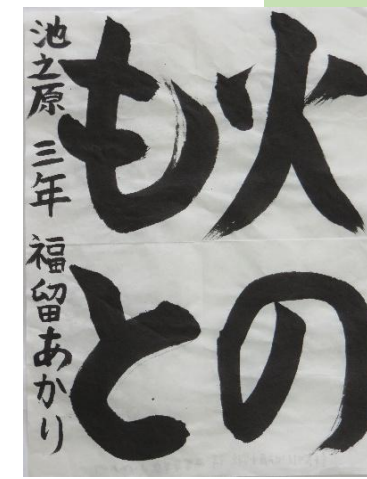 火の
もと
池之原 三年 福留あかり